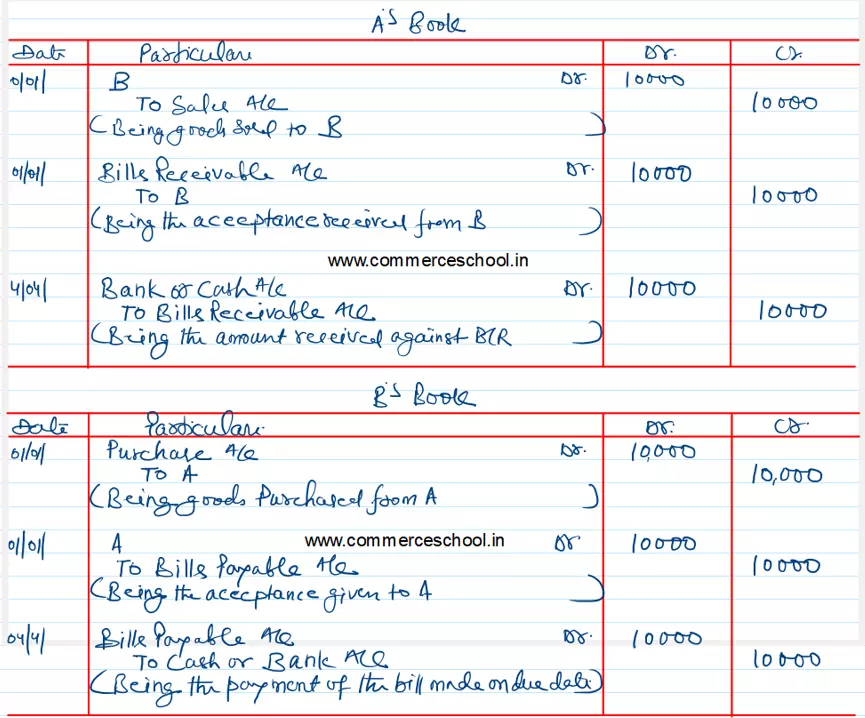 A's Book
Date Particulars Dr. Cr.
01/01 B Dr. 10000
To Sales A/c 10000
(Being goods sold to B)
01/01 Bills Receivable A/c Dr. 10000
To B 10000
(Being the acceptance received from B)
www.commerceschool.in
4/04 Bank or Cash A/c Dr. 10000
To Bills Receivable A/c 10000
(Being the amount received against B/R)
B's Book
Date Particulars Dr. Cr.
01/01 Purchase A/c Dr. 10,000
To A 10,000
(Being goods Purchased from A)
www.commerceschool.in
01/01 A Dr 10000
To Bills Payable A/c 10000
(Being the acceptance given to A)
04/4 Bills Payable A/c Dr. 10000
To Cash or Bank A/c 10000
(Being the payment of the bill made on due date)